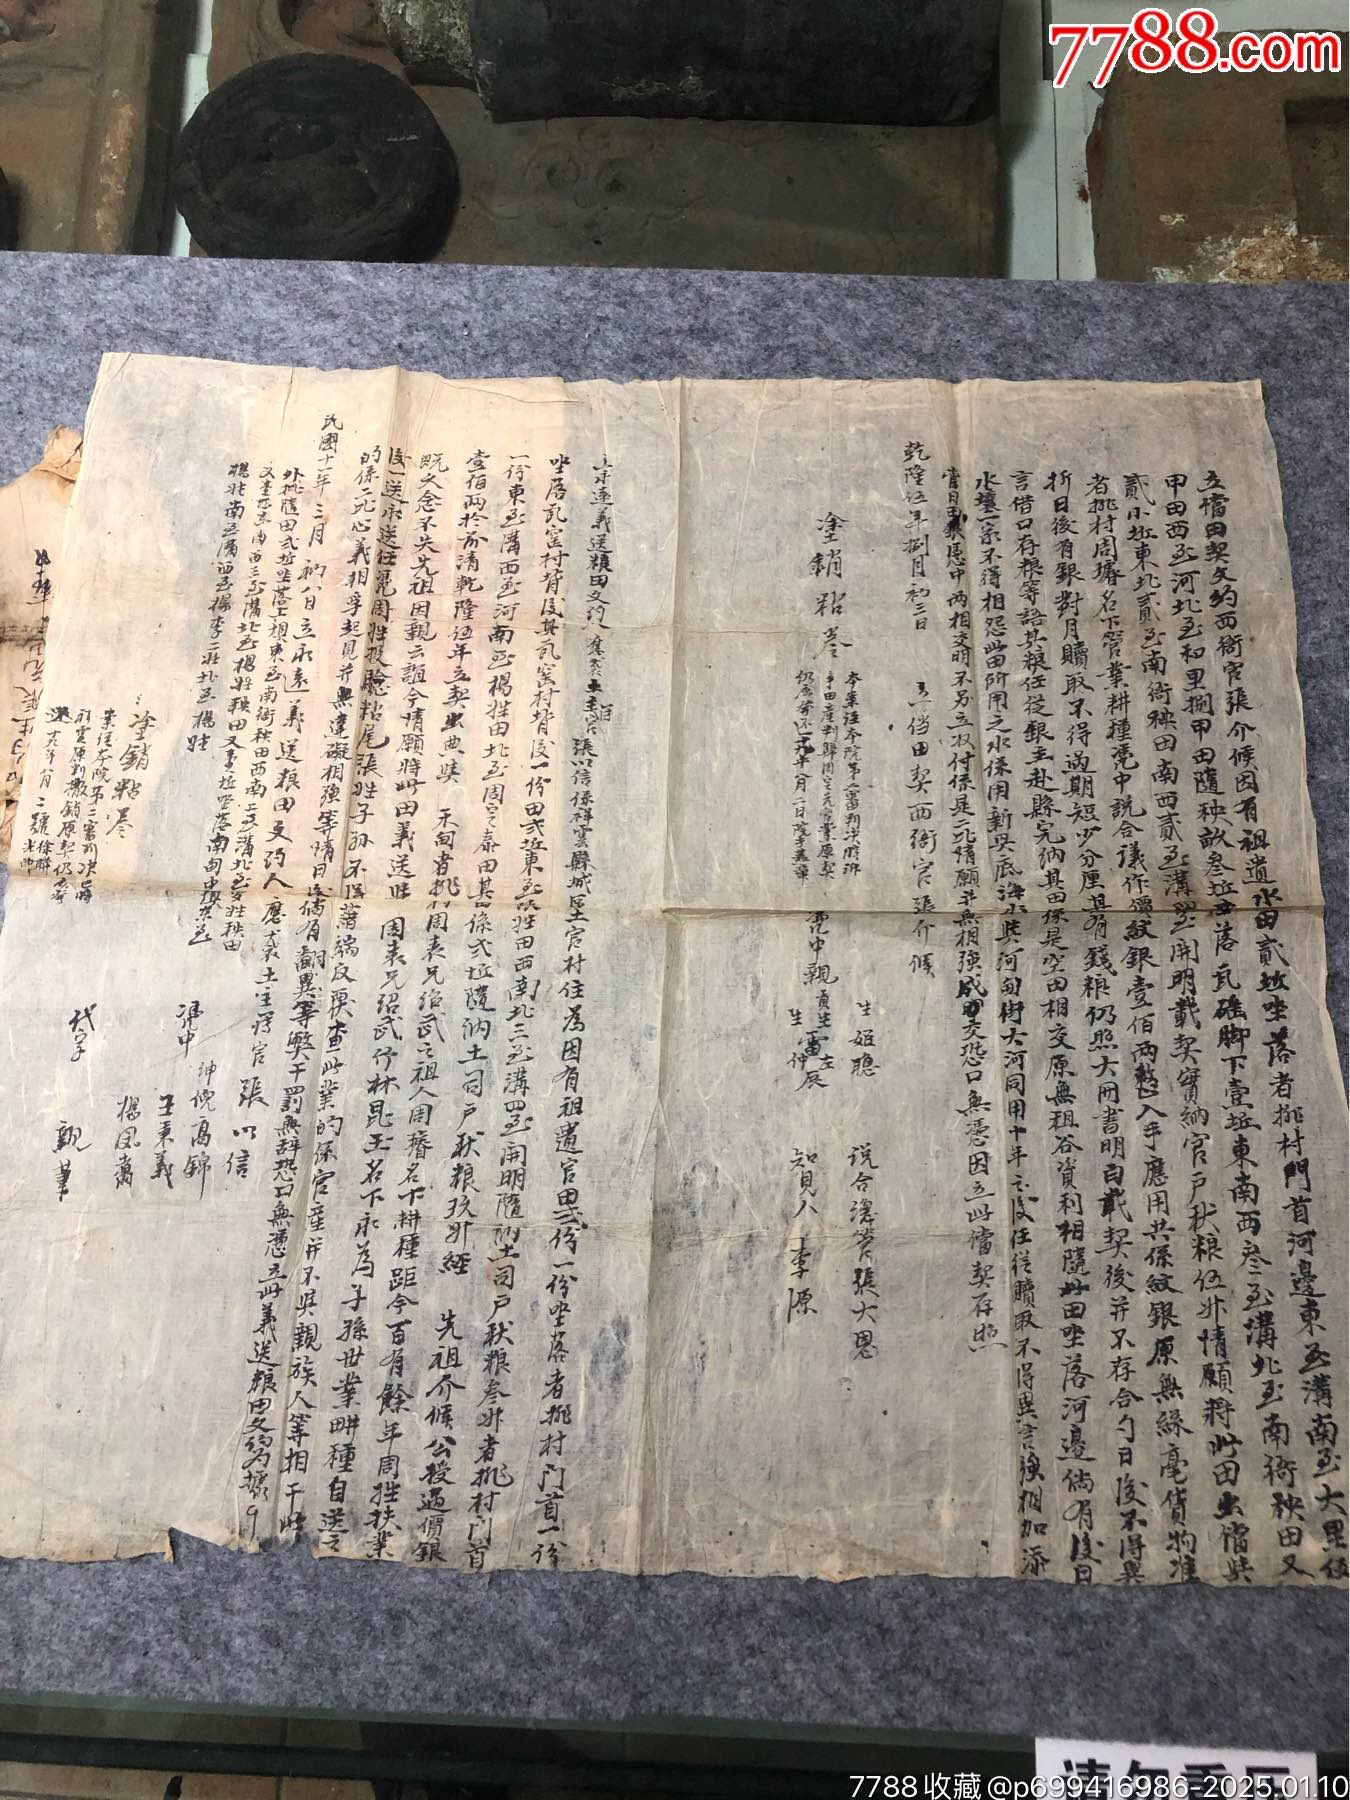 7788.com
立當田契文約西衙官張介候因有祖遺水田貳坵坐落者挑村門首河邊東至溝南至大里伍
甲田西至河北至和里捌甲田隨秧畝叁坵坐落瓦碓脚下壹坵東南西叁至溝北至南衙秧田又
貳小坵東北貳至南衙秧田南西貳至溝四至開明載契實納官戶秋粮伍升情願將此田出當與
者挑村周璿名下管業耕種憑中說合議作價紋銀壹佰兩整入手應用共係紋銀原無絲毫貨物准
折日後有銀對月贖取不得過期短少分厘其有錢粮仍照大冊書明白載契後并不存合勺日後不得異
言借口存粮等語其粮任從銀主赴縣完納其田係是空田相交原無租谷資利相隨此田坐落河邊倘有後日
水壤一家不得相怨此田所用之水係用新興底海水與河甸街大河同用十年之後任從贖取不得異言強相加添
當日田銀憑中两相交明不另立收付係是二比情願并無相強成交恐口無憑因立此當契存照
乾隆伍年捌月初三日 立當田契西衙官張介候
憑中親 貢生雷左辰
生 仲
生姬聰
說合總管張大恩
知見人李源
塗銷粘卷
本案經本院第二審判決
田產判歸周定元管業原契
立永遠義送粮田文約人應襲土主官張以信係祥雲縣城區土官村住為因有祖遺官田弍份一份坐落者挑村門首一份
坐落瓦窑村背後其瓦窑村背後一份田弍坵東至 姓田西南北三至溝四至開明隨納土司戶秋粮叁升者挑村門首
一份東至溝西至河南至楊姓田北至周定泰田其田係弍坵隨納土司戶秋粮玖升經 先祖介候公授過價銀
壹佰两於前清乾隆伍年立契出典與 天甸者挑村周表兄紹武之祖人周璿名下耕種距今百有餘年周姓扶業
既久念不失先祖因親云誼今情願將此田義送與 周表兄紹武作林昆玉名下永為子孫世業畊種自送之
後一送永送任憑周姓投驗粘尾張姓子孫不得藉端反覆查此業的係官産并不與親族人等相干此
的係二比心義相孚起見并無違礙相強等情日後倘有翻異等獘干罰無辭恐口無憑立此義送粮田文約為據
民國十一年三月初八日立永遠義送粮田文約人應襲土主官張以信
外批隨田弍坵坐落上垻東至南衙秧田西南二至溝北至 姓秧田
又壹坵東南西三至溝北至楊姓秧田又壹坵坐落南甸中垻東至
楊姓南至溝西至楊李二姓北至楊姓
憑中 紳倪高錦
王秉義
楊國萬
代字 親筆
塗銷粘卷
案經本院第二審判決
撤銷原契仍
7788收藏@p699416986-2025.01.10